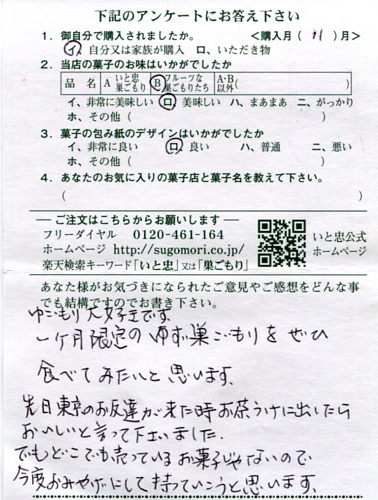 下記のアンケートにお答え下さい
1．御自分で購入されましたか。 <購入月（ 11 ）月>
イ、自分又は家族が購入 ロ、いただき物
2．当店の菓子のお味はいかがでしたか
品 名 A いと忠巣ごもり B フルーツな巣ごもりたち A・B以外（ ）
イ、非常に美味しい ロ 美味しい ハ、まあまあ ニ、がっかり
ホ、その他（ ）
3．菓子の包み紙のデザインはいかがでしたか
イ、非常に良い ロ 良い ハ、普通 ニ、悪い
ホ、その他（ ）
4．あなたのお気に入りの菓子店と菓子名を教えて下さい。
（ ）
ご注文はこちらからお願いします
フリーダイヤル 0120-461-164
ホームページ http://sugomori.co.jp/
楽天検索キーワード「いと忠」又は「巣ごもり」
いと忠公式
ホームページ
あなた様がお気づきになられたご意見やご感想をどんな事
でも結構ですのでお書き下さい。
ゆごもり大好きです。
一ヶ月限定のゆず巣ごもりをぜひ
食べてみたいと思います。
先日東京のお友達が来た時お茶うけに出したら
おいしいと言って下さいました。
でもどこでも売っているお菓子じゃないので
今度おみやげにして持っていこうと思います。